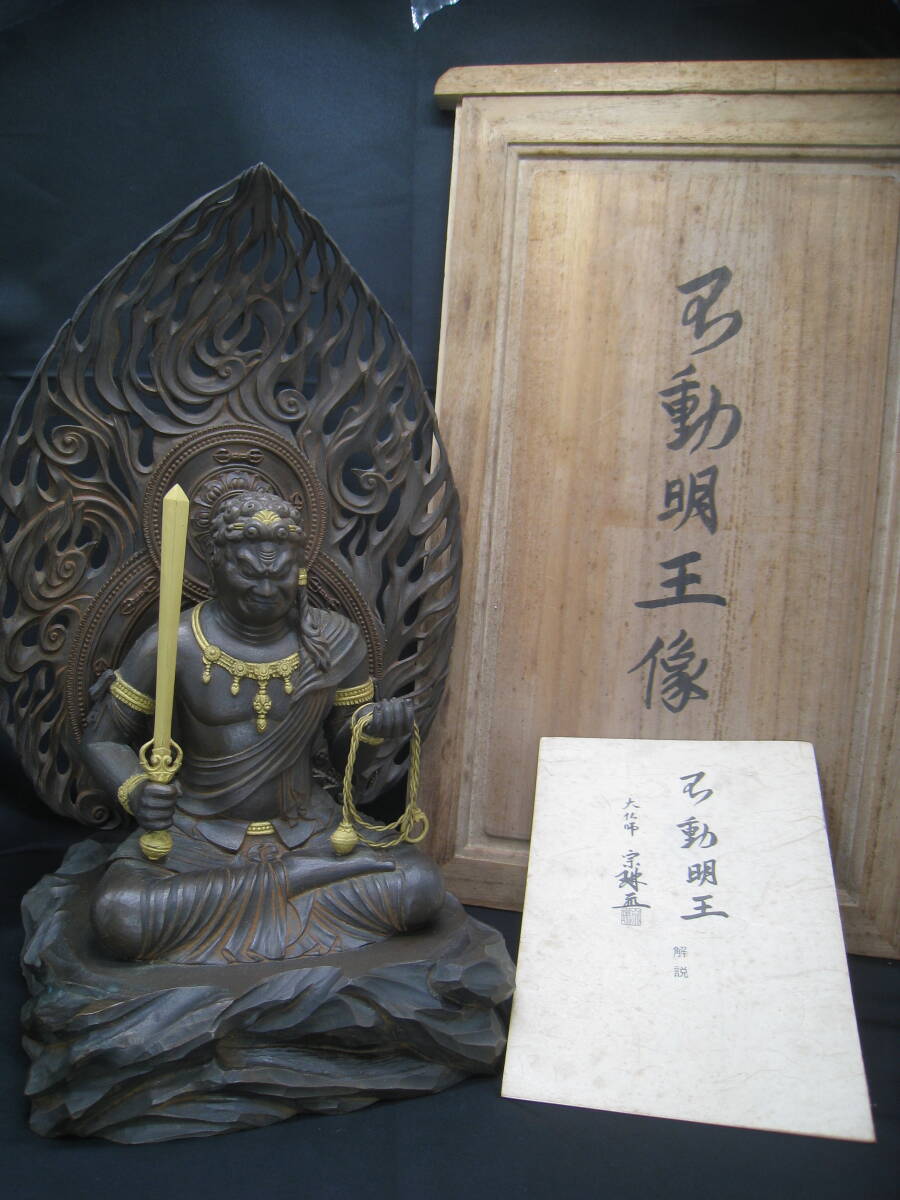 不動明王像
不動明王
解説
大仏師
宗琳